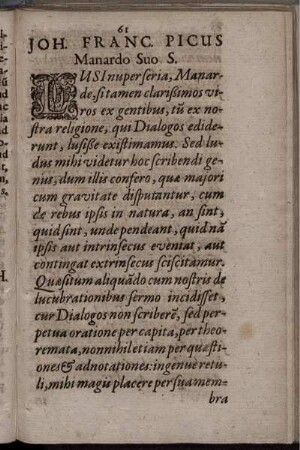 61
JOH. FRANC. PICUS
Manardo Suo S.
LUSI nuper seria, Manar-
de, si tamen clarissimos vi-
ros ex gentibus, tū ex no-
stra religione, qui Dialogos edide-
runt, lusisse existimamus. Sed lu-
dus mihi videtur hoc scribendi ge-
nus, dum illis confero, quæ majori
cum gravitate disputantur, cum
de rebus ipsis in natura, an sint,
quid sint, unde pendeant, quid nā
ipsis aut intrinsecus eveniat, aut
contingat extrinsecus sciscitamur.
Quæsitum aliquādo cum nostris de
lucubrationibus sermo incidisset,
cur Dialogos non scriberē, sed per-
petua oratione per capita, per theo-
remata, nonnihil etiam per quæsti-
ones & adnotationes: ingenue retu-
li, mihi magis placere per sua mem-
bra